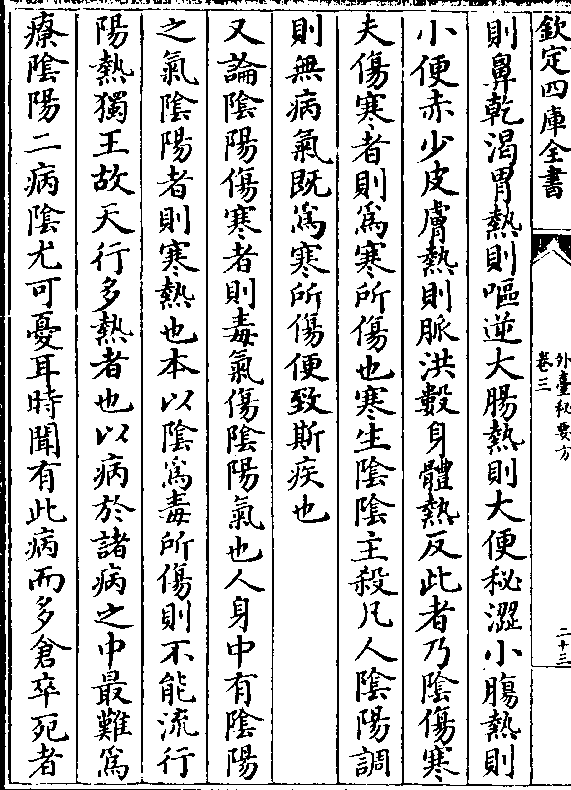 欽定四庫全書
外臺秘要方
卷三
二十三
則鼻乾渴胃熱則嘔逆大腸熱則大便秘澀小腸熱則
小便赤少皮膚熱則脈洪數身體熱反此者乃陰傷寒
夫傷寒者則為寒所傷也寒生陰陰主殺凡人陰陽調
則無病氣既為寒所傷便致斯疾也
又論陰陽傷寒者則毒氣傷陰陽氣也人身中有陰陽
之氣陰陽者則寒熱也本以陰為毒所傷則不能流行
陽熱獨王故天行多熱者也以病於諸病之中最難為
療陰陽二病陰尤可憂耳時聞有此病而多倉卒死者